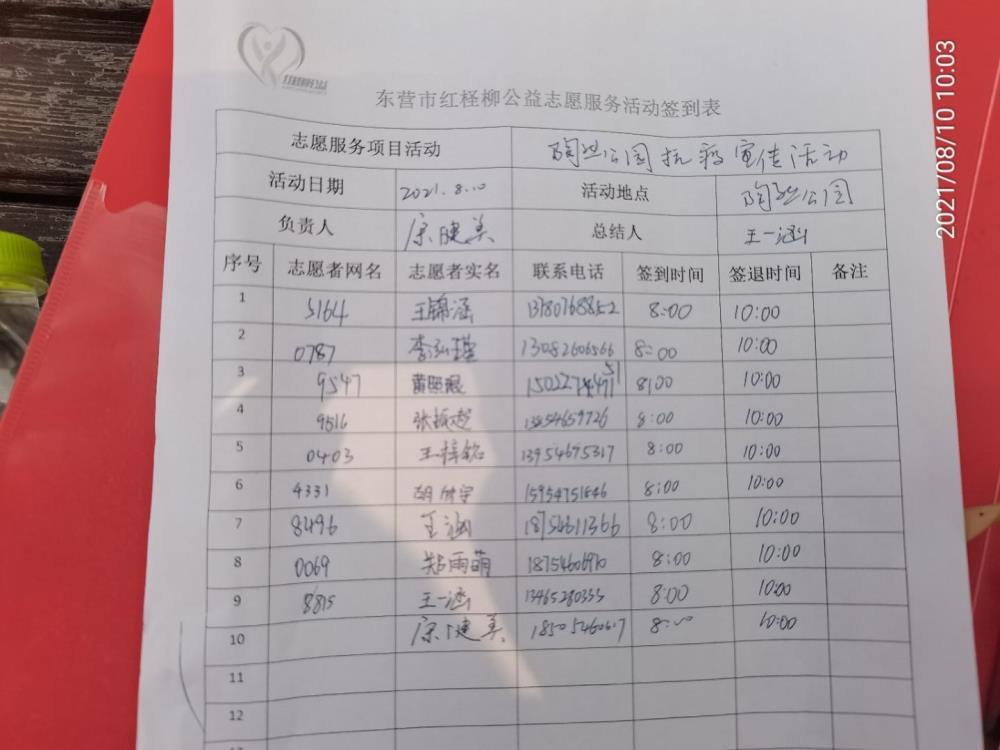 东营市红柽柳公益志愿服务活动签到表
志愿服务项目活动 陶然公园抗疫宣传活动
活动日期 2021.8.10 活动地点 陶然公园
负责人 健美 总结人 王一涵
序号 志愿者网名 志愿者实名 联系电话 签到时间 签退时间 备注
1 5164 王锦涵 13780768852 8:00 10:00
2 0787 李泓瑾 13082606566 8:00 10:00
3 9547 8:00 10:00
4 9516 张振超 13854659726 8:00 10:00
5 0403 王梓铭 13954675317 8:00 10:00
6 4331 15954751846 8:00 10:00
7 8496 王涵 18754611366 8:00 10:00
8 0069 郑雨萌 18754606910 8:00 10:00
9 8815 王一涵 13465280333 8:00 10:00
10 健美 18505460617 8:00 10:00
11
12
2021/08/10 10:03